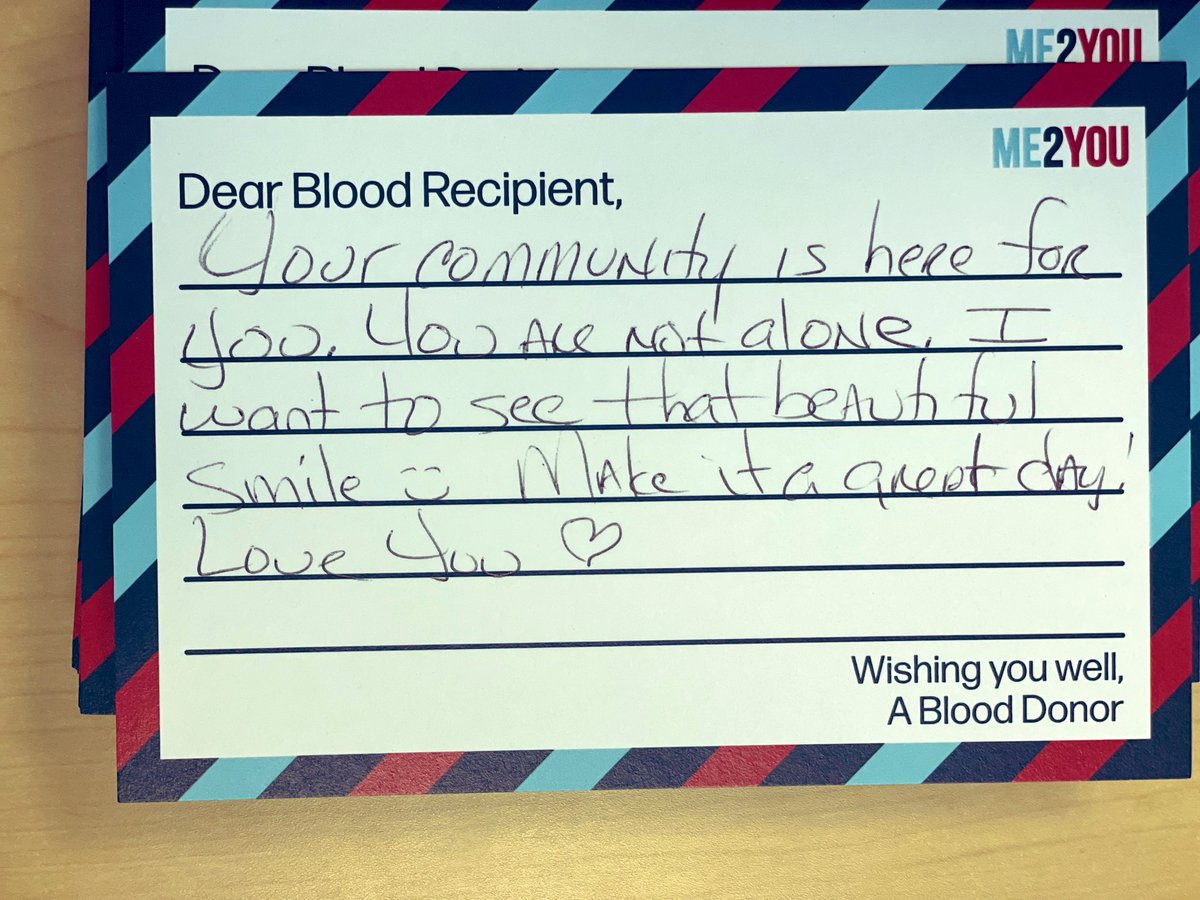 ME2YOU
Dear Blood Recipient,
ME2YOU
Dear Blood Recipient,
Your community is here for
you. You are not alone. I
want to see that beautiful
smile Make it a great day!
Love You
Wishing you well,
A Blood Donor